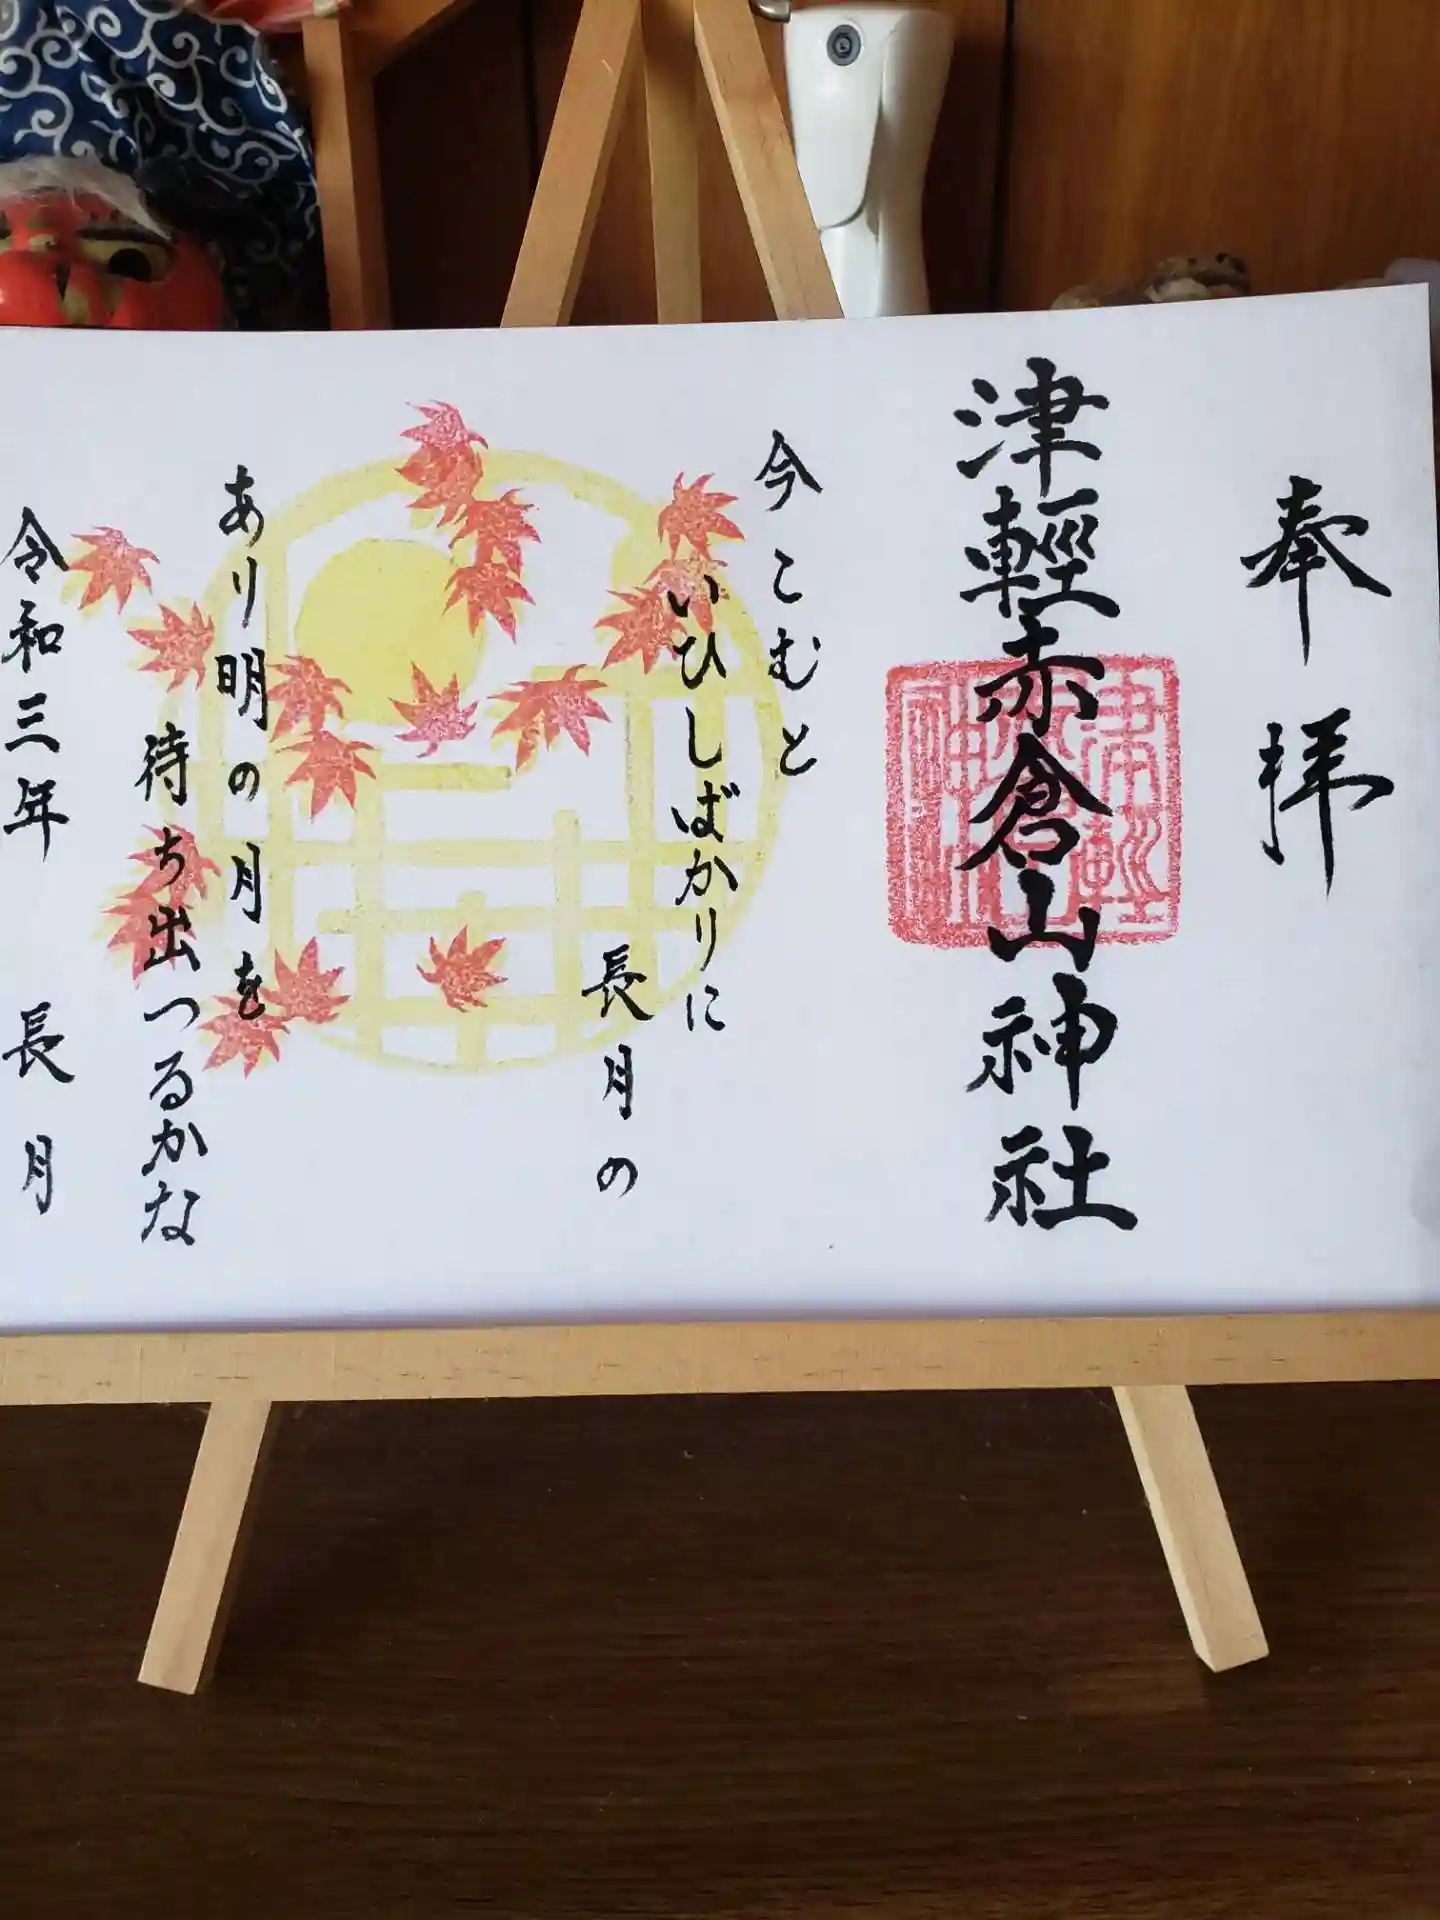 奉拝
津輕赤倉山神社
今こむと
いひしばかりに
長月の
あり明の月を
待ち出つるかな
令和三年 長月